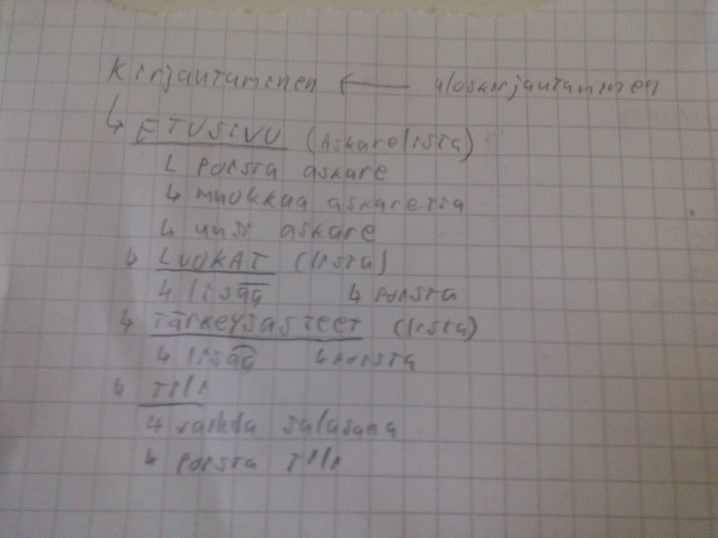 Kirjautuminen ← uloskirjautuminen
↳ ETUSIVU (Askarelista)
↳ Poista askare
↳ muokkaa askaretta
↳ uusi askare
↳ LUOKAT (lista)
↳ lisää ↳ poista
↳ TärkeysasTeeT (lista)
↳ lisää ↳ poista
↳ Tili
↳ vaihda salasana
↳ Poista Tili